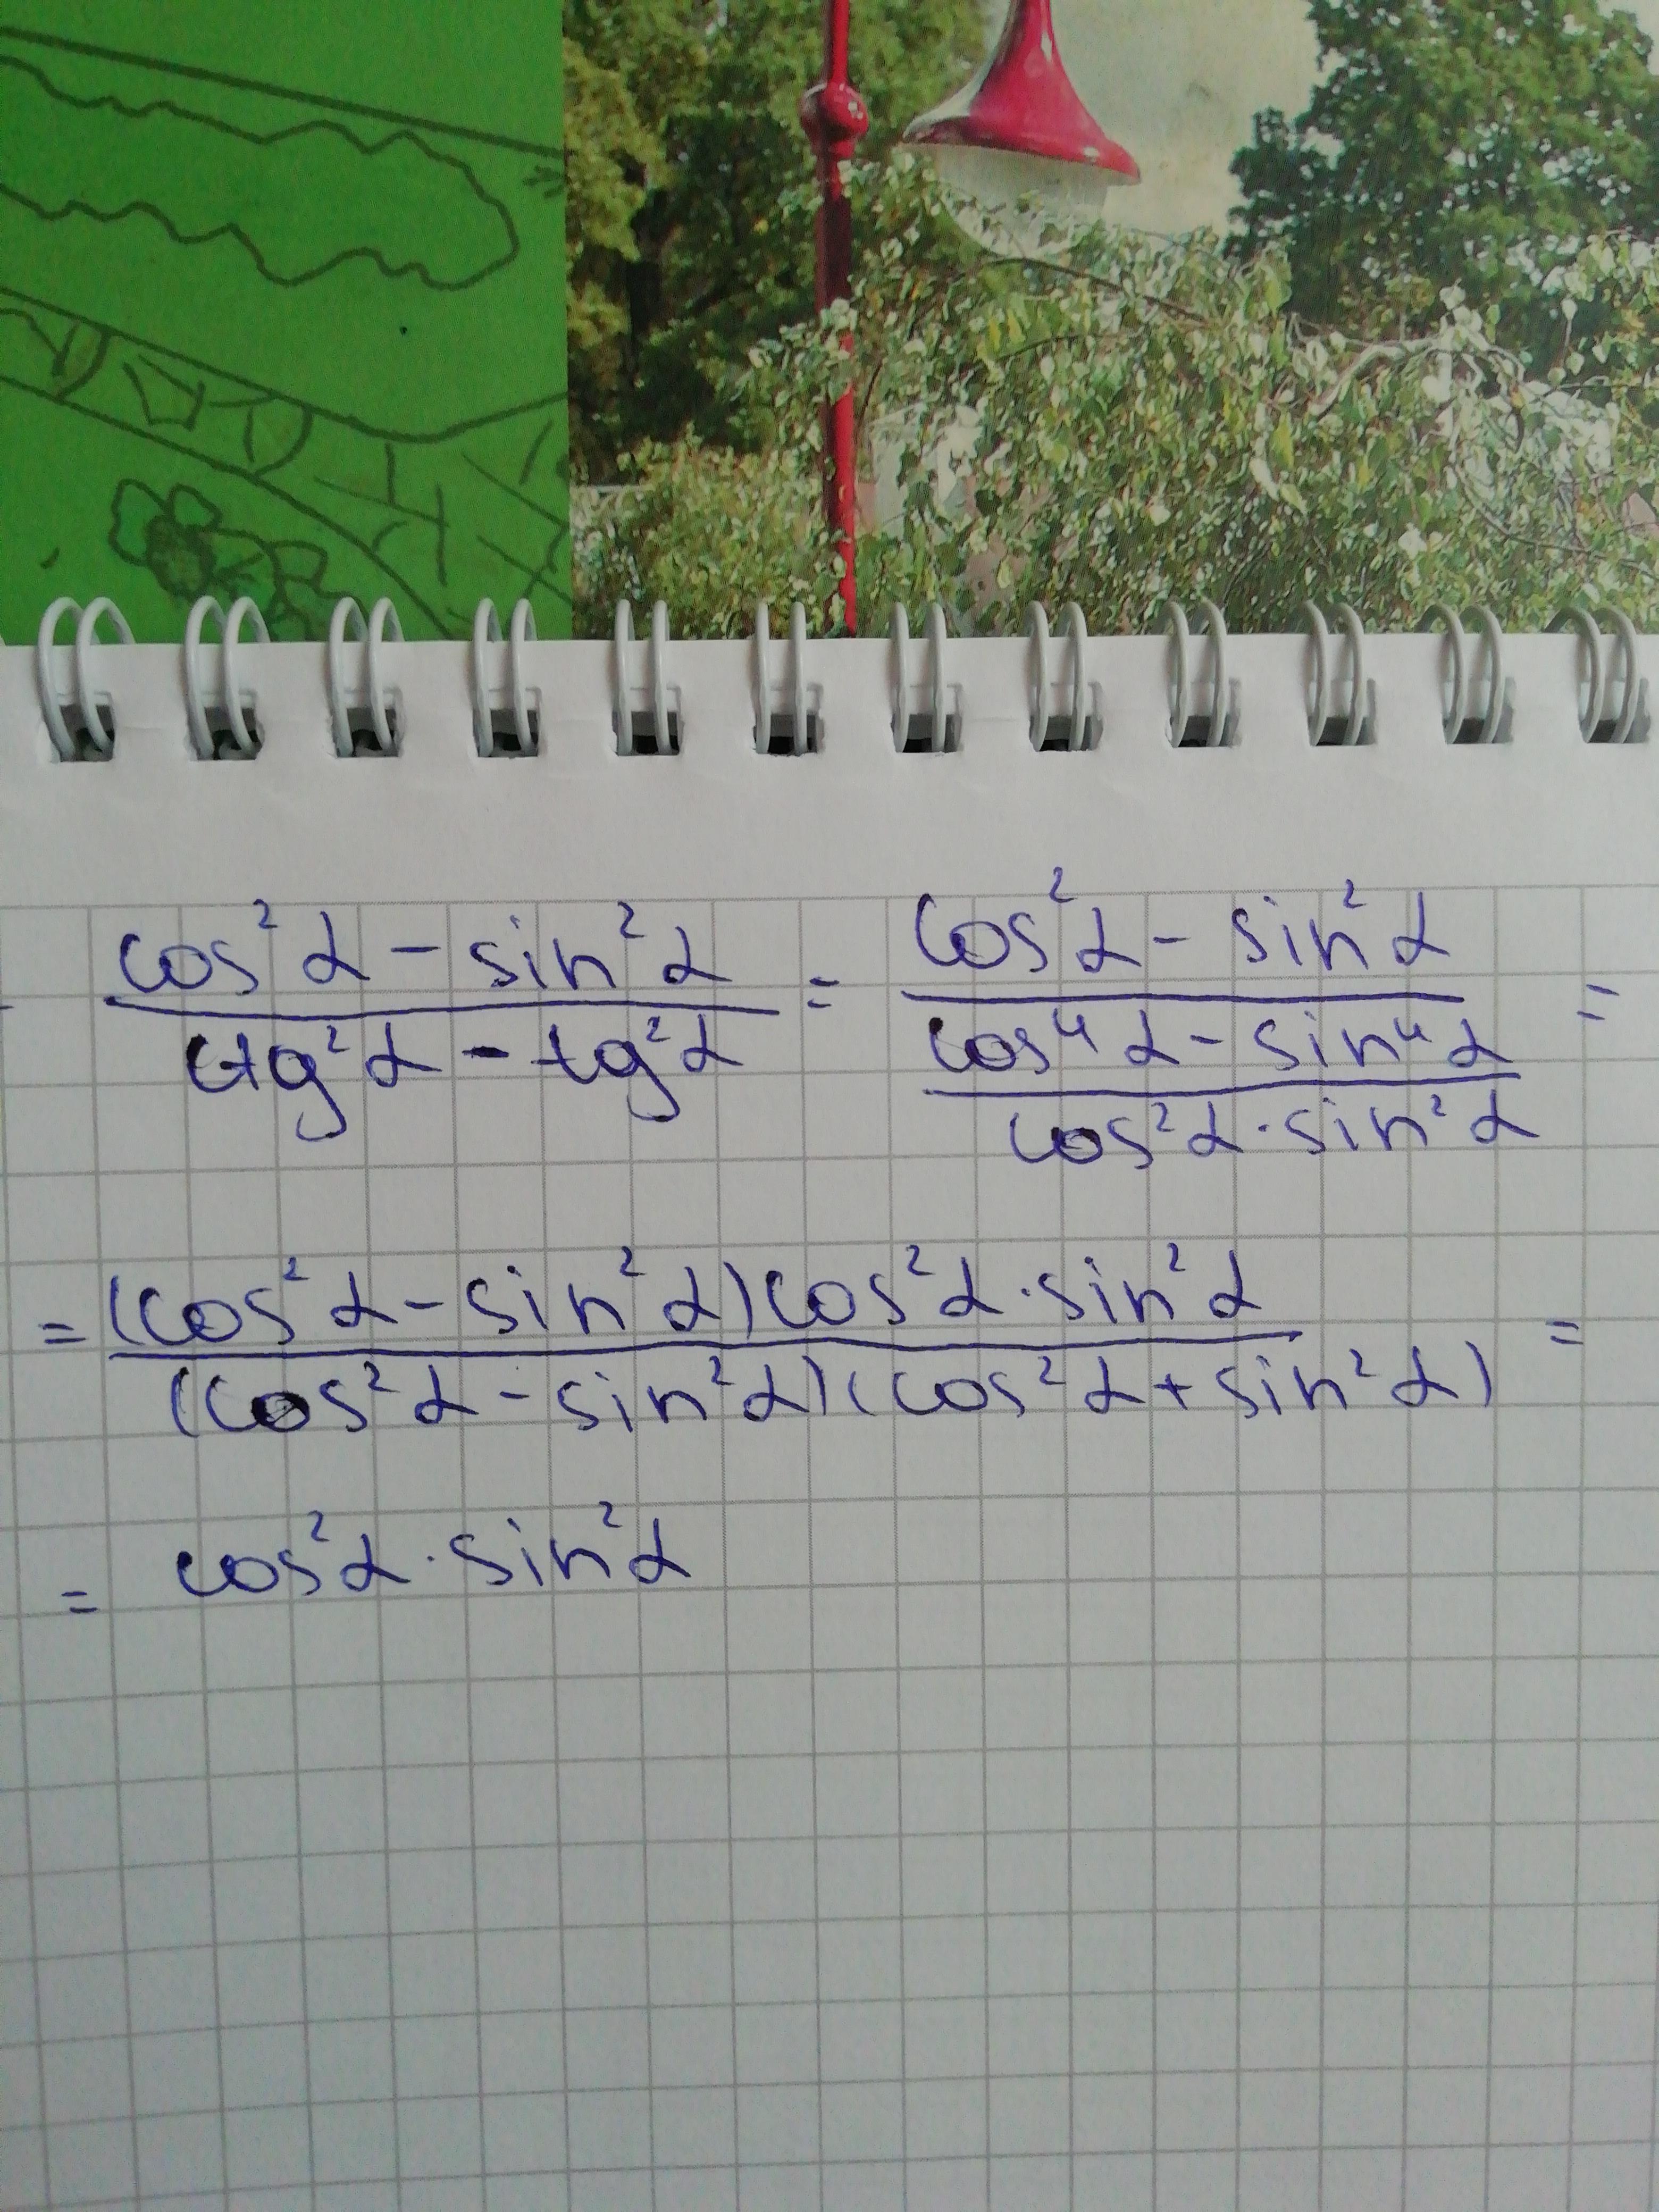 cos²α - sin²α / ctg²α - tg²α = cos²α - sin²α / (cos⁴α - sin⁴α / cos²α · sin²α) =
= (cos²α - sin²α) cos²α · sin²α / (cos²α - sin²α)(cos²α + sin²α) =
= cos²α · sin²α